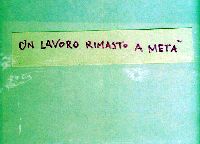 UN LAVORO RIMASTO A METÀ